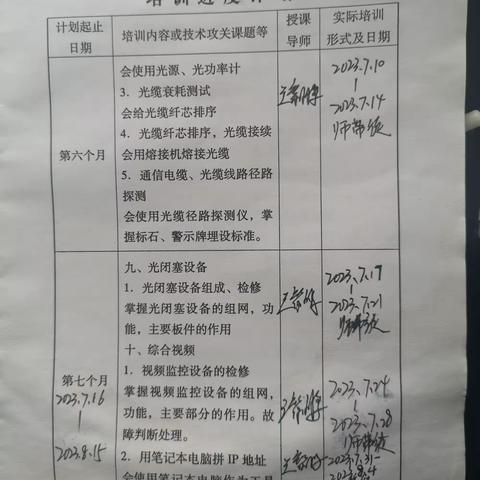 培训进度计划
计划起止
日期
培训内容或技术攻关课题等
授课
导师
实际培训
形式及日期
会使用光源、光功率计
3. 光缆衰耗测试
会给光缆纤芯排序
4. 光缆纤芯排序，光缆接续
会用熔接机熔接光缆
5. 通信电缆、光缆线路径路
探测
会使用光缆径路探测仪，掌
握标石、警示牌埋设标准。
第六个月
2023.7.10
2023.7.14
师带徒
九、光闭塞设备
1. 光闭塞设备组成、检修
掌握光闭塞设备的组网，功
能，主要板件的作用
2023.7.17
2023.7.21
师带徒
十、综合视频
1. 视频监控设备的检修
掌握视频监控设备的组网，
功能，主要部分的作用。故
障判断处理。
第七个月
2023.7.16
2023.8.15
2023.7.24
2023.7.28
师带徒
2. 用笔记本电脑拼 IP 地址
2023.7.31-
2023.8.4